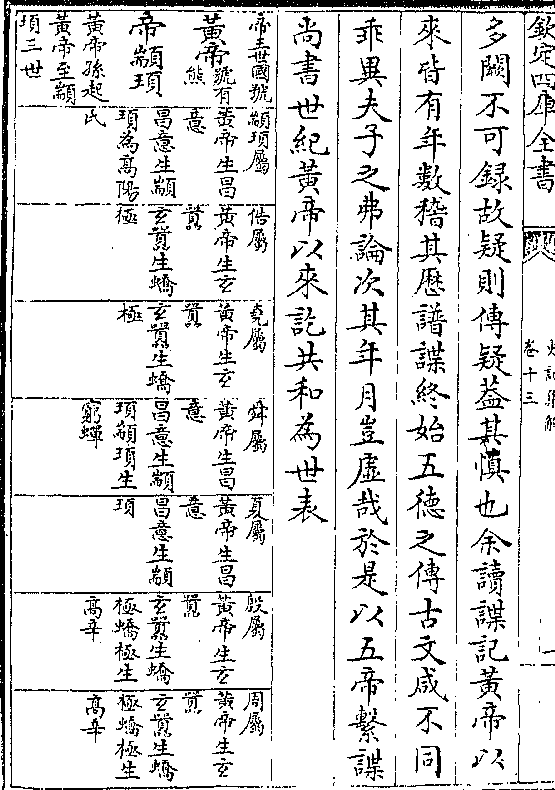 欽定四庫全書
史記集解
卷十三
一
多闕不可録故疑則傳疑葢其慎也余讀諜記黄帝以
來皆有年數稽其歴譜諜終始五德之傳古文咸不同
乖異夫子之弗論次其年月豈虚哉於是以五帝繫諜
尚書世紀黄帝以來訖共和為世表
帝王世國號
顓頊屬
俈屬
堯屬
舜屬
夏屬
殷屬
周屬
黄帝號有熊
黄帝生昌意
黄帝生玄囂
黄帝生玄囂
黄帝生昌意
黄帝生昌意
黄帝生玄囂
黄帝生玄囂
帝顓頊
黄帝孫起
黄帝至顓
頊三世
昌意生顓
頊為高陽
氏
玄囂生蟜
極
玄囂生蟜
極
昌意生顓
頊顓頊生
窮蟬
昌意生顓
頊
玄囂生蟜
極蟜極生
高辛
玄囂生蟜
極蟜極生
高辛